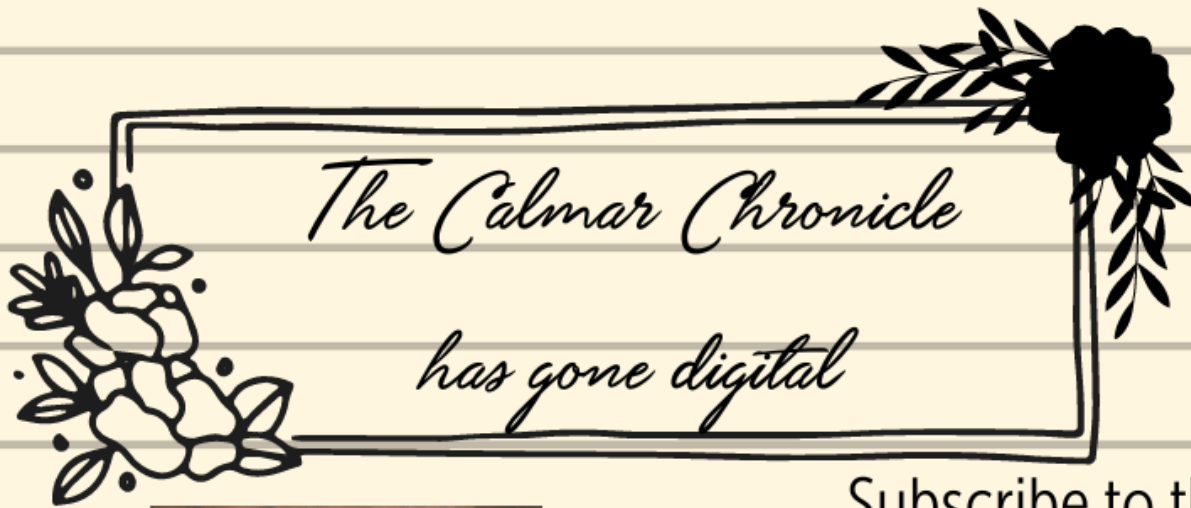 The Calmar Chronicle
has gone digital
Subscribe to